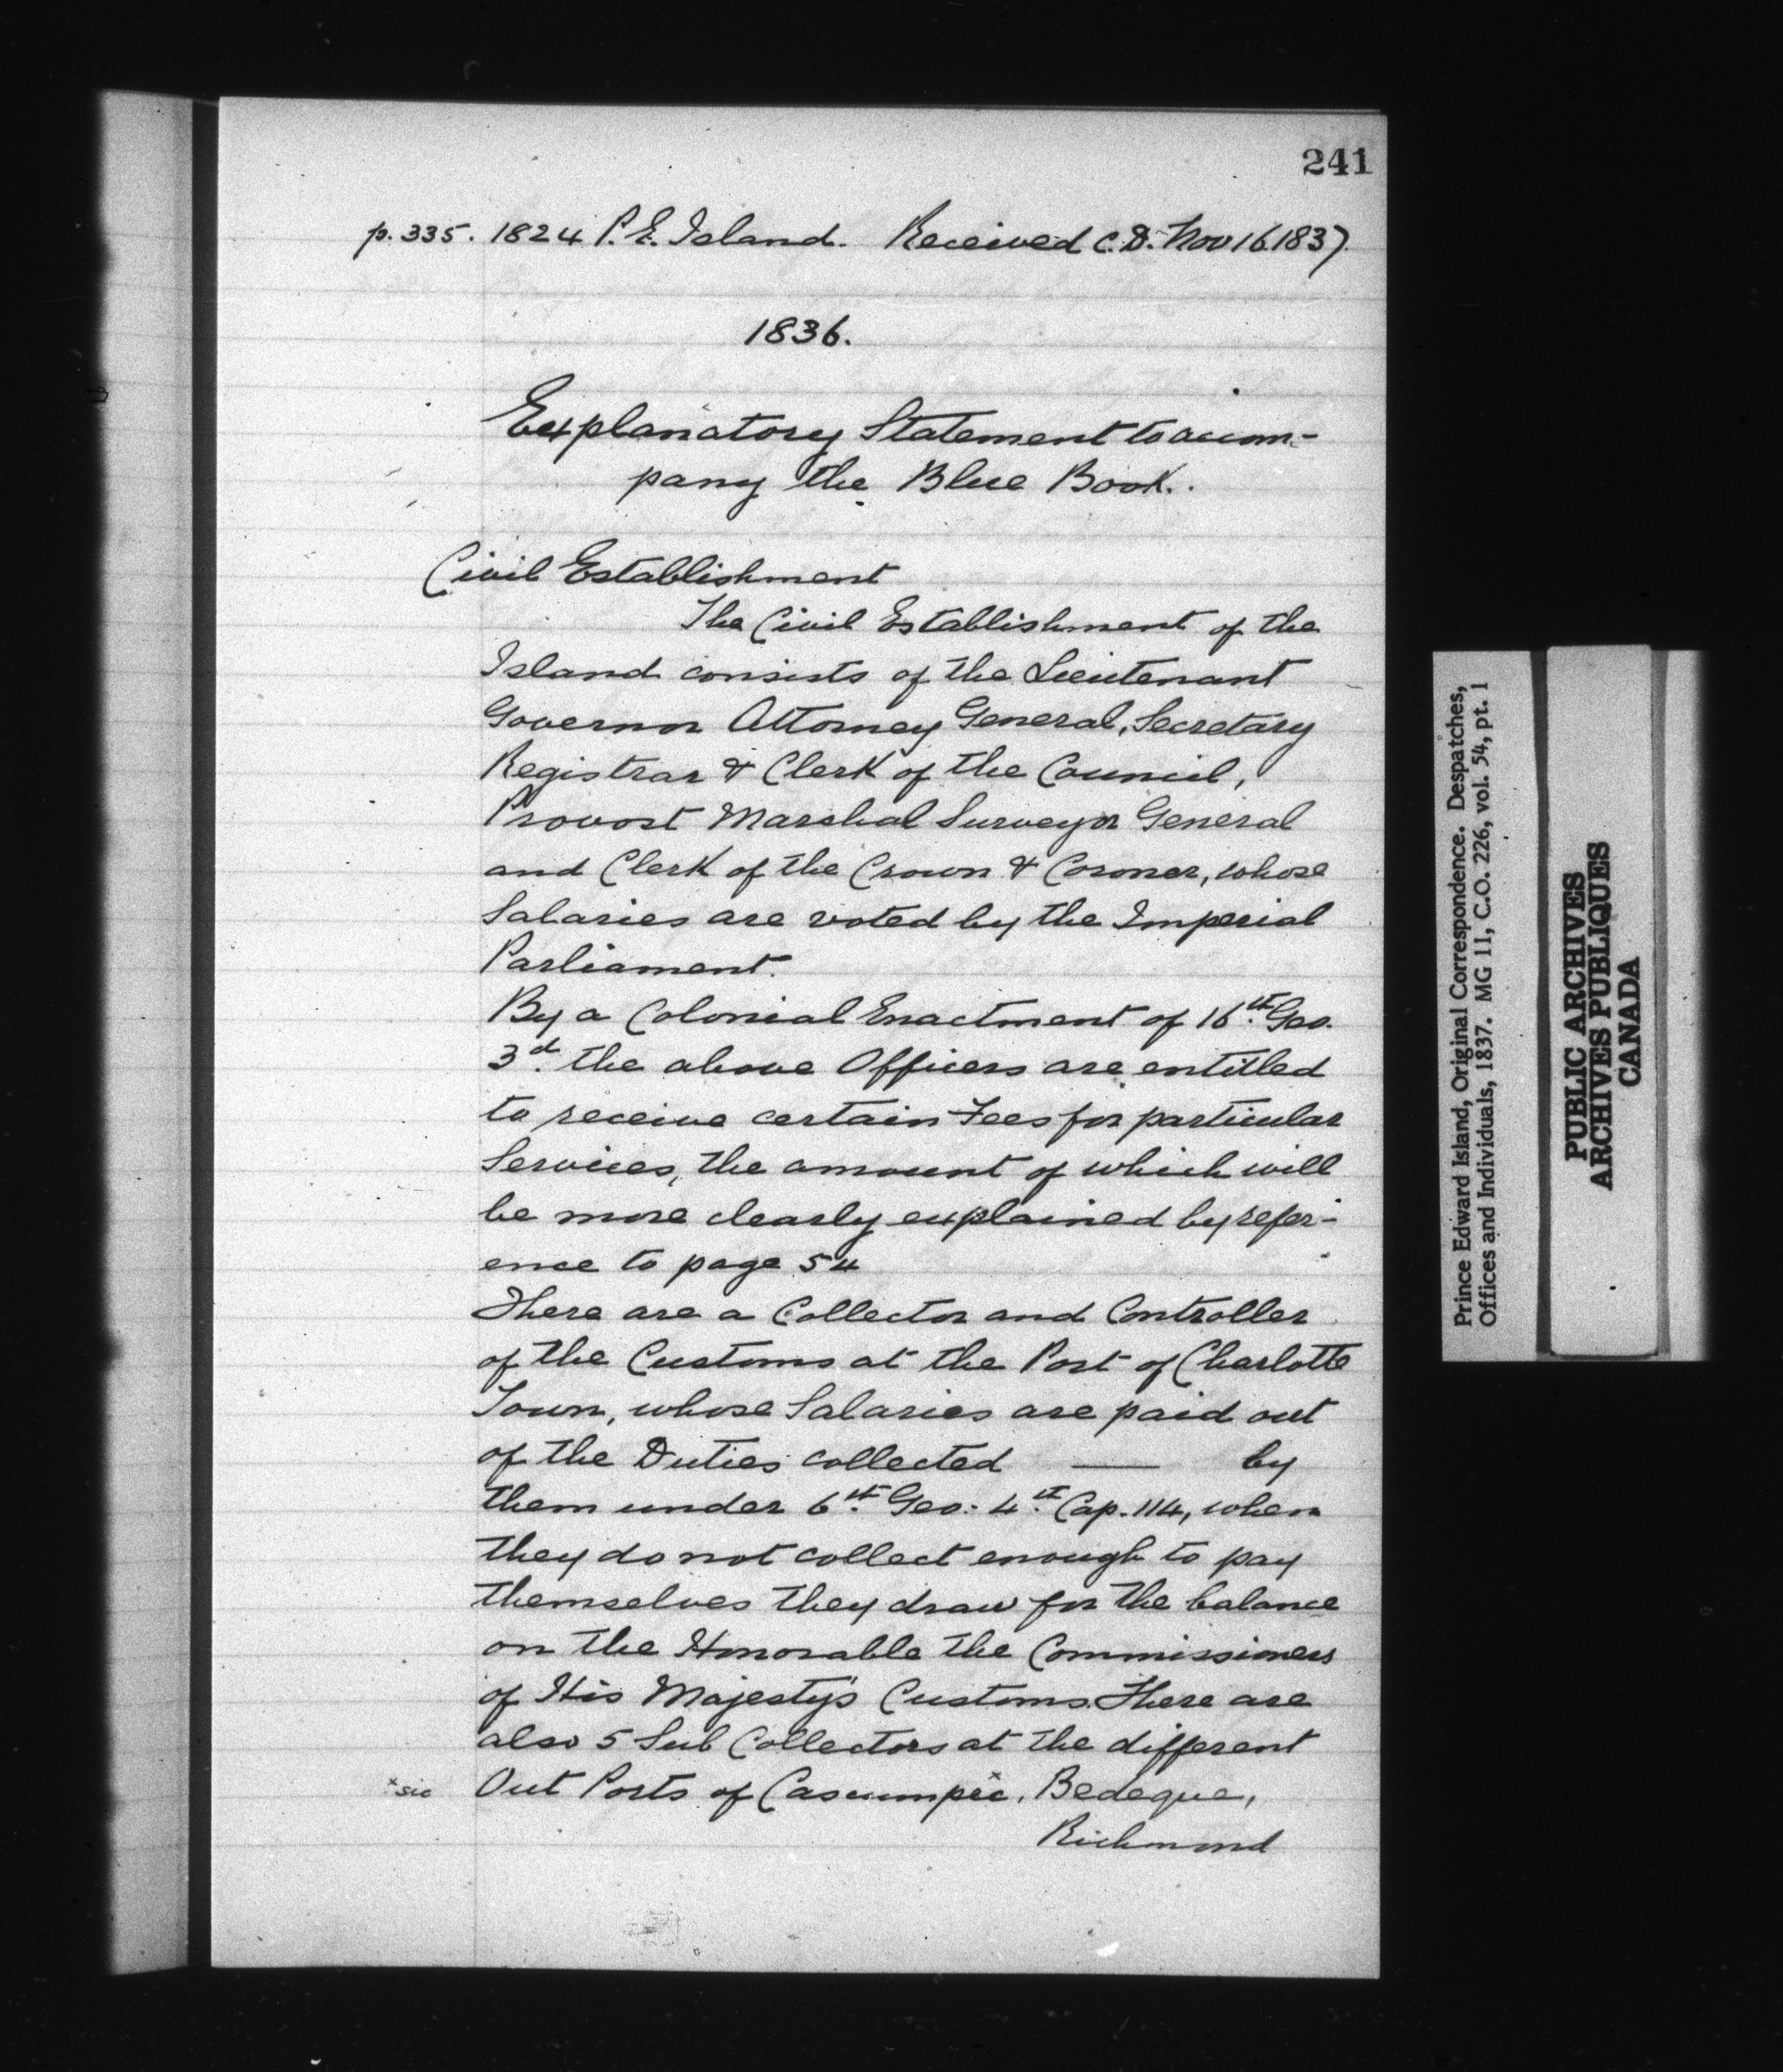 241
p. 335. 1824 P. E. Island. Received C. D. Nov 16 1837.
1836.
Explanatory Statement to accom-
pany the Blue Book.
Civil Establishment
The Civil Establishment of the
Island consists of the Lieutenant
Governor Attorney General, Secretary
Registrar & Clerk of the Council,
Provost Marshal Surveyor General
and Clerk of the Crown & Coroner, whose
Salaries are voted by the Imperial
Parliament.
By a Colonial Enactment of 16th. Geo.
3d. the above Officers are entitled
to receive certain Fees for particular
Services, the amount of which will
be more clearly explained by refer-
ence to page 54
There are a Collector and Controller
of the Customs at the Port of Charlotte
Town, whose Salaries are paid out
of the Duties collected — by
them under 6th. Geo: 4th. Cap. 114, when
they do not collect enough to pay
themselves they draw for the balance
on the Honorable the Commissioners
of His Majesty's Customs. There are
also 5 Sub Collectors at the different
x sic Out Ports of Cascumpec x, Bedeque,
Richmond
Prince Edward Island, Original Correspondence. Despatches,
Offices and Individuals, 1837. MG 11, C.O. 226, vol. 54, pt. 1
PUBLIC ARCHIVES
ARCHIVES PUBLIQUES
CANADA